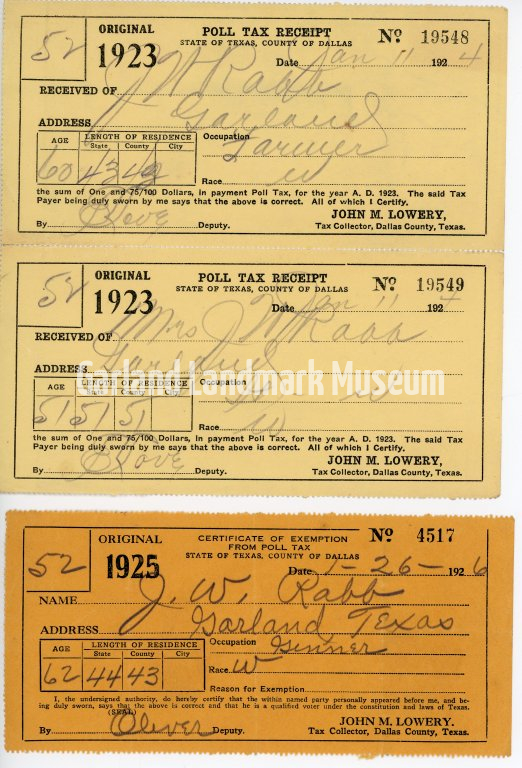 52
ORIGINAL
1923
POLL TAX RECEIPT
STATE OF TEXAS, COUNTY OF DALLAS
Nº 19548
Date Jan 11 1924
RECEIVED OF J W Rabb
ADDRESS Garland
AGE LENGTH OF RESIDENCE
State County City
60 43 42
Occupation Farmer
Race W
the sum of One and 75/100 Dollars, in payment Poll Tax, for the year A. D. 1923. The said Tax
Payer being duly sworn by me says that the above is correct. All of which I Certify.
JOHN M. LOWERY,
By Deputy. Tax Collector, Dallas County, Texas.
52
ORIGINAL
1923
POLL TAX RECEIPT
STATE OF TEXAS, COUNTY OF DALLAS
Nº 19549
Date Jan 11 1924
RECEIVED OF Mrs J W Rabb
ADDRESS Garland
Garland Landmark Museum
AGE LENGTH OF RESIDENCE
State County City
51 51 51
Occupation
Race W
the sum of One and 75/100 Dollars, in payment Poll Tax, for the year A. D. 1923. The said Tax
Payer being duly sworn by me says that the above is correct. All of which I Certify.
JOHN M. LOWERY,
By Deputy. Tax Collector, Dallas County, Texas.
52
ORIGINAL
1925
CERTIFICATE OF EXEMPTION
FROM POLL TAX
STATE OF TEXAS, COUNTY OF DALLAS
Nº 4517
Date 1-26-1926
NAME J. W. Rabb
ADDRESS Garland Texas
AGE LENGTH OF RESIDENCE
State County City
62 44 43
Occupation Ginner
Race W
Reason for Exemption
I, the undersigned authority, do hereby certify that the within named party personally appeared before me, and be-
ing duly sworn, says that the above is correct and that he is a qualified voter under the constitution and laws of Texas.
(SEAL)
JOHN M. LOWERY.
By Oliver Deputy. Tax Collector, Dallas County, Texas.